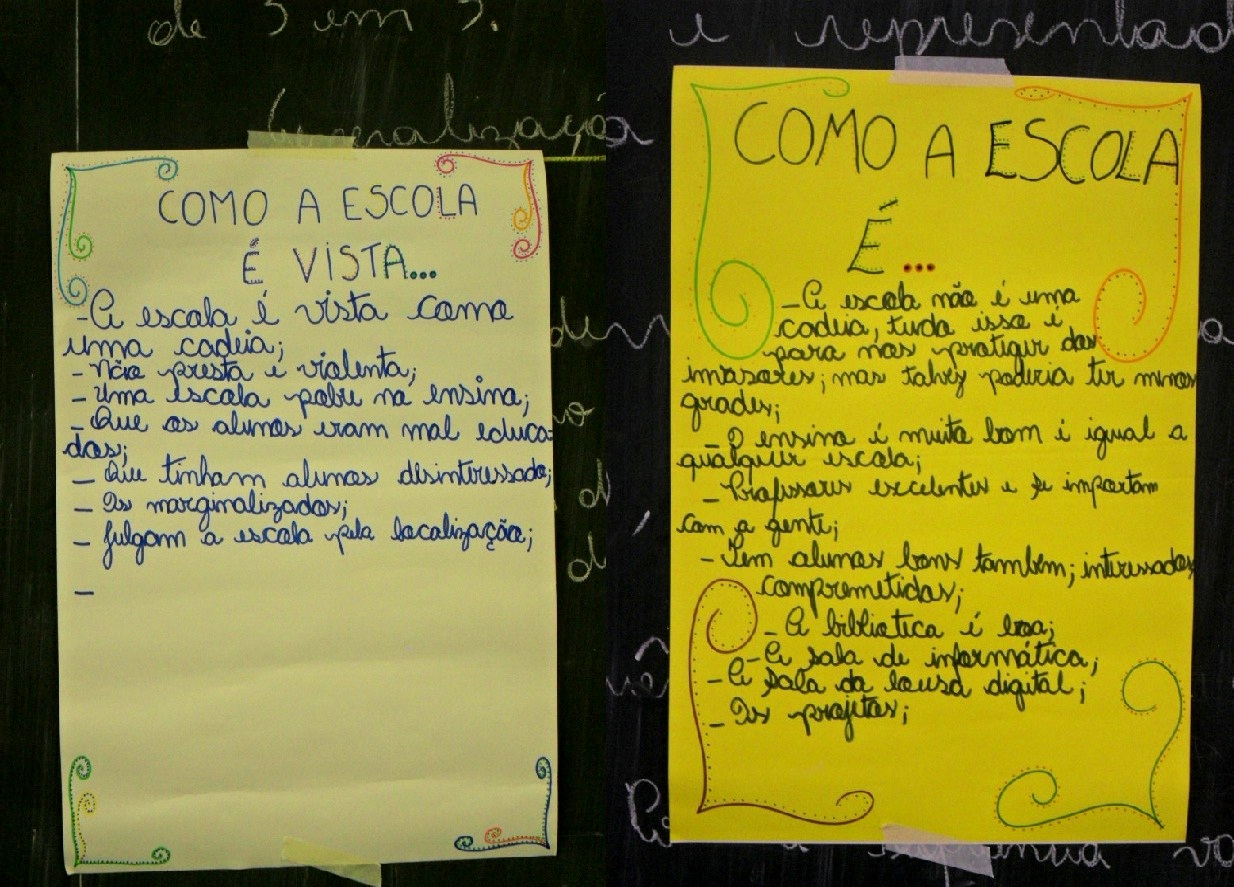 de 3 em 3.
Generalização
COMO A ESCOLA
É VISTA...
-A escola é vista como
uma cadeia;
- Não presta e violenta;
- Uma escola pobre na ensina;
- Que os alunos eram mal educa-
dos;
- Que tinham alunos desinteressado;
- Os marginalizados;
- Julgam a escola pela localização;
-
e representad
COMO A ESCOLA
É...
-A escola não é uma
cadeia, tudo isso é
para nos protigir dos
invasores; mas talvez poderia ter menos
grades;
- O ensino é muito bom é igual a
qualquer escola;
- Professores excelentes e se importam
com a gente;
- Tem alunos bons também; interessados
comprometidos;
- A biblioteca é boa;
- A sala de informática;
- A sala da lousa digital;
- Os projetos;